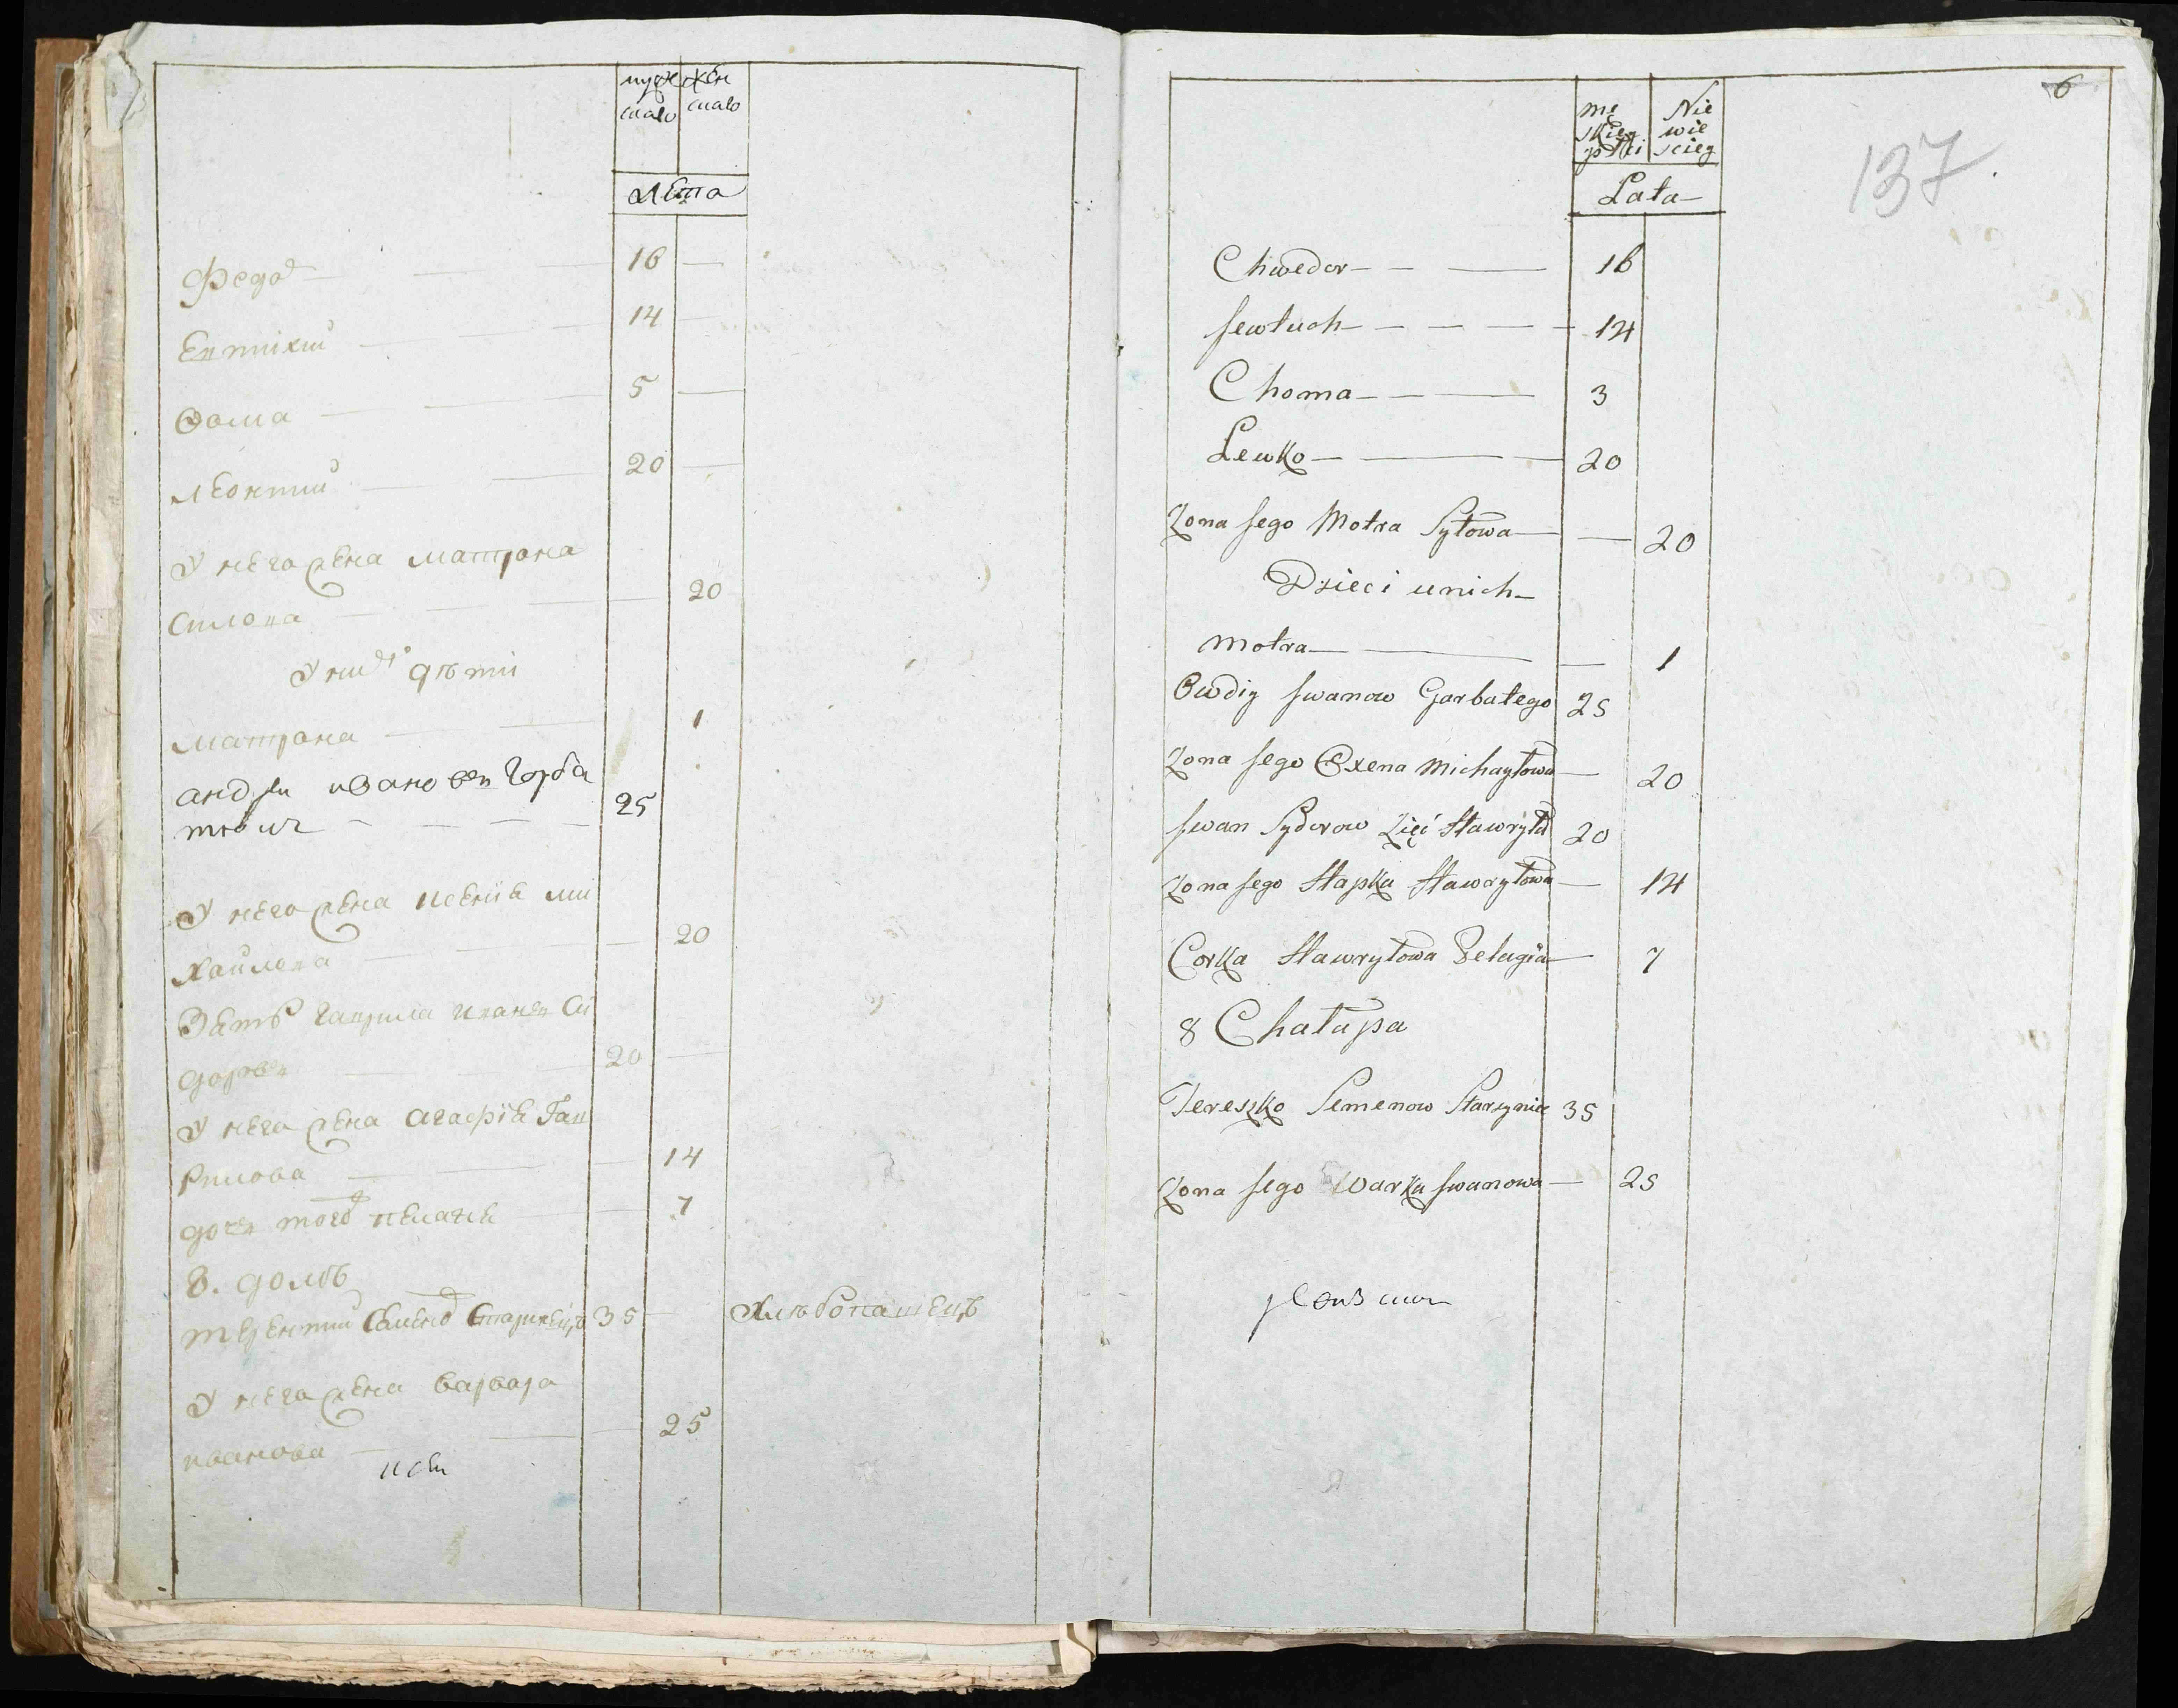 муже
скаго
жен
скаго
Лета
Федор 16
Евтихий 14
Фома 5
Леонтий 20
У него жена Матрона
Силова 20
У них дѣти
Матрона 1
Андрей Иванов Горба
тович 25
У него жена Ксения Ми
хайлова 20
Зять Гаврила Иван Си
доров 20
У него жена Агафия Гав
рилова 14
дочь того Пелагея 7
8. домъ
Терентий Семенов Старинецъ 35 Хлѣбопашецъ
У него жена Варвара
Иванова 25
6
137.
mę
skieg
płci
Nie
wie
scieg
Lata
Chwedor 16
Jewtuch 14
Choma 3
Lewko 20
Zona Jego Motra Sylowa 20
Dzieci unich
Motra 1
Owdiy Jwanow Garbatego 25
Zona Jego Oxena Michayłowa 20
Jwan Sydorow Zięć Hawryła 20
Zona Jego Hapka Hawryłowa 14
Corka Hawryłowa Pelagia 7
8 Chałupa
Tereszko Semenow Starzyniec 35
Zona Jego Warka Jwanowa 25